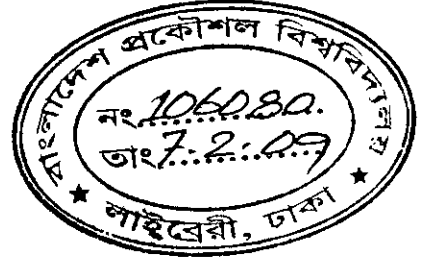 বাংলাদেশ প্রকৌশল বিশ্ববিদ্যালয়
নং 106080.
তাং 7.2.09
★ লাইব্রেরী, ঢাকা ★